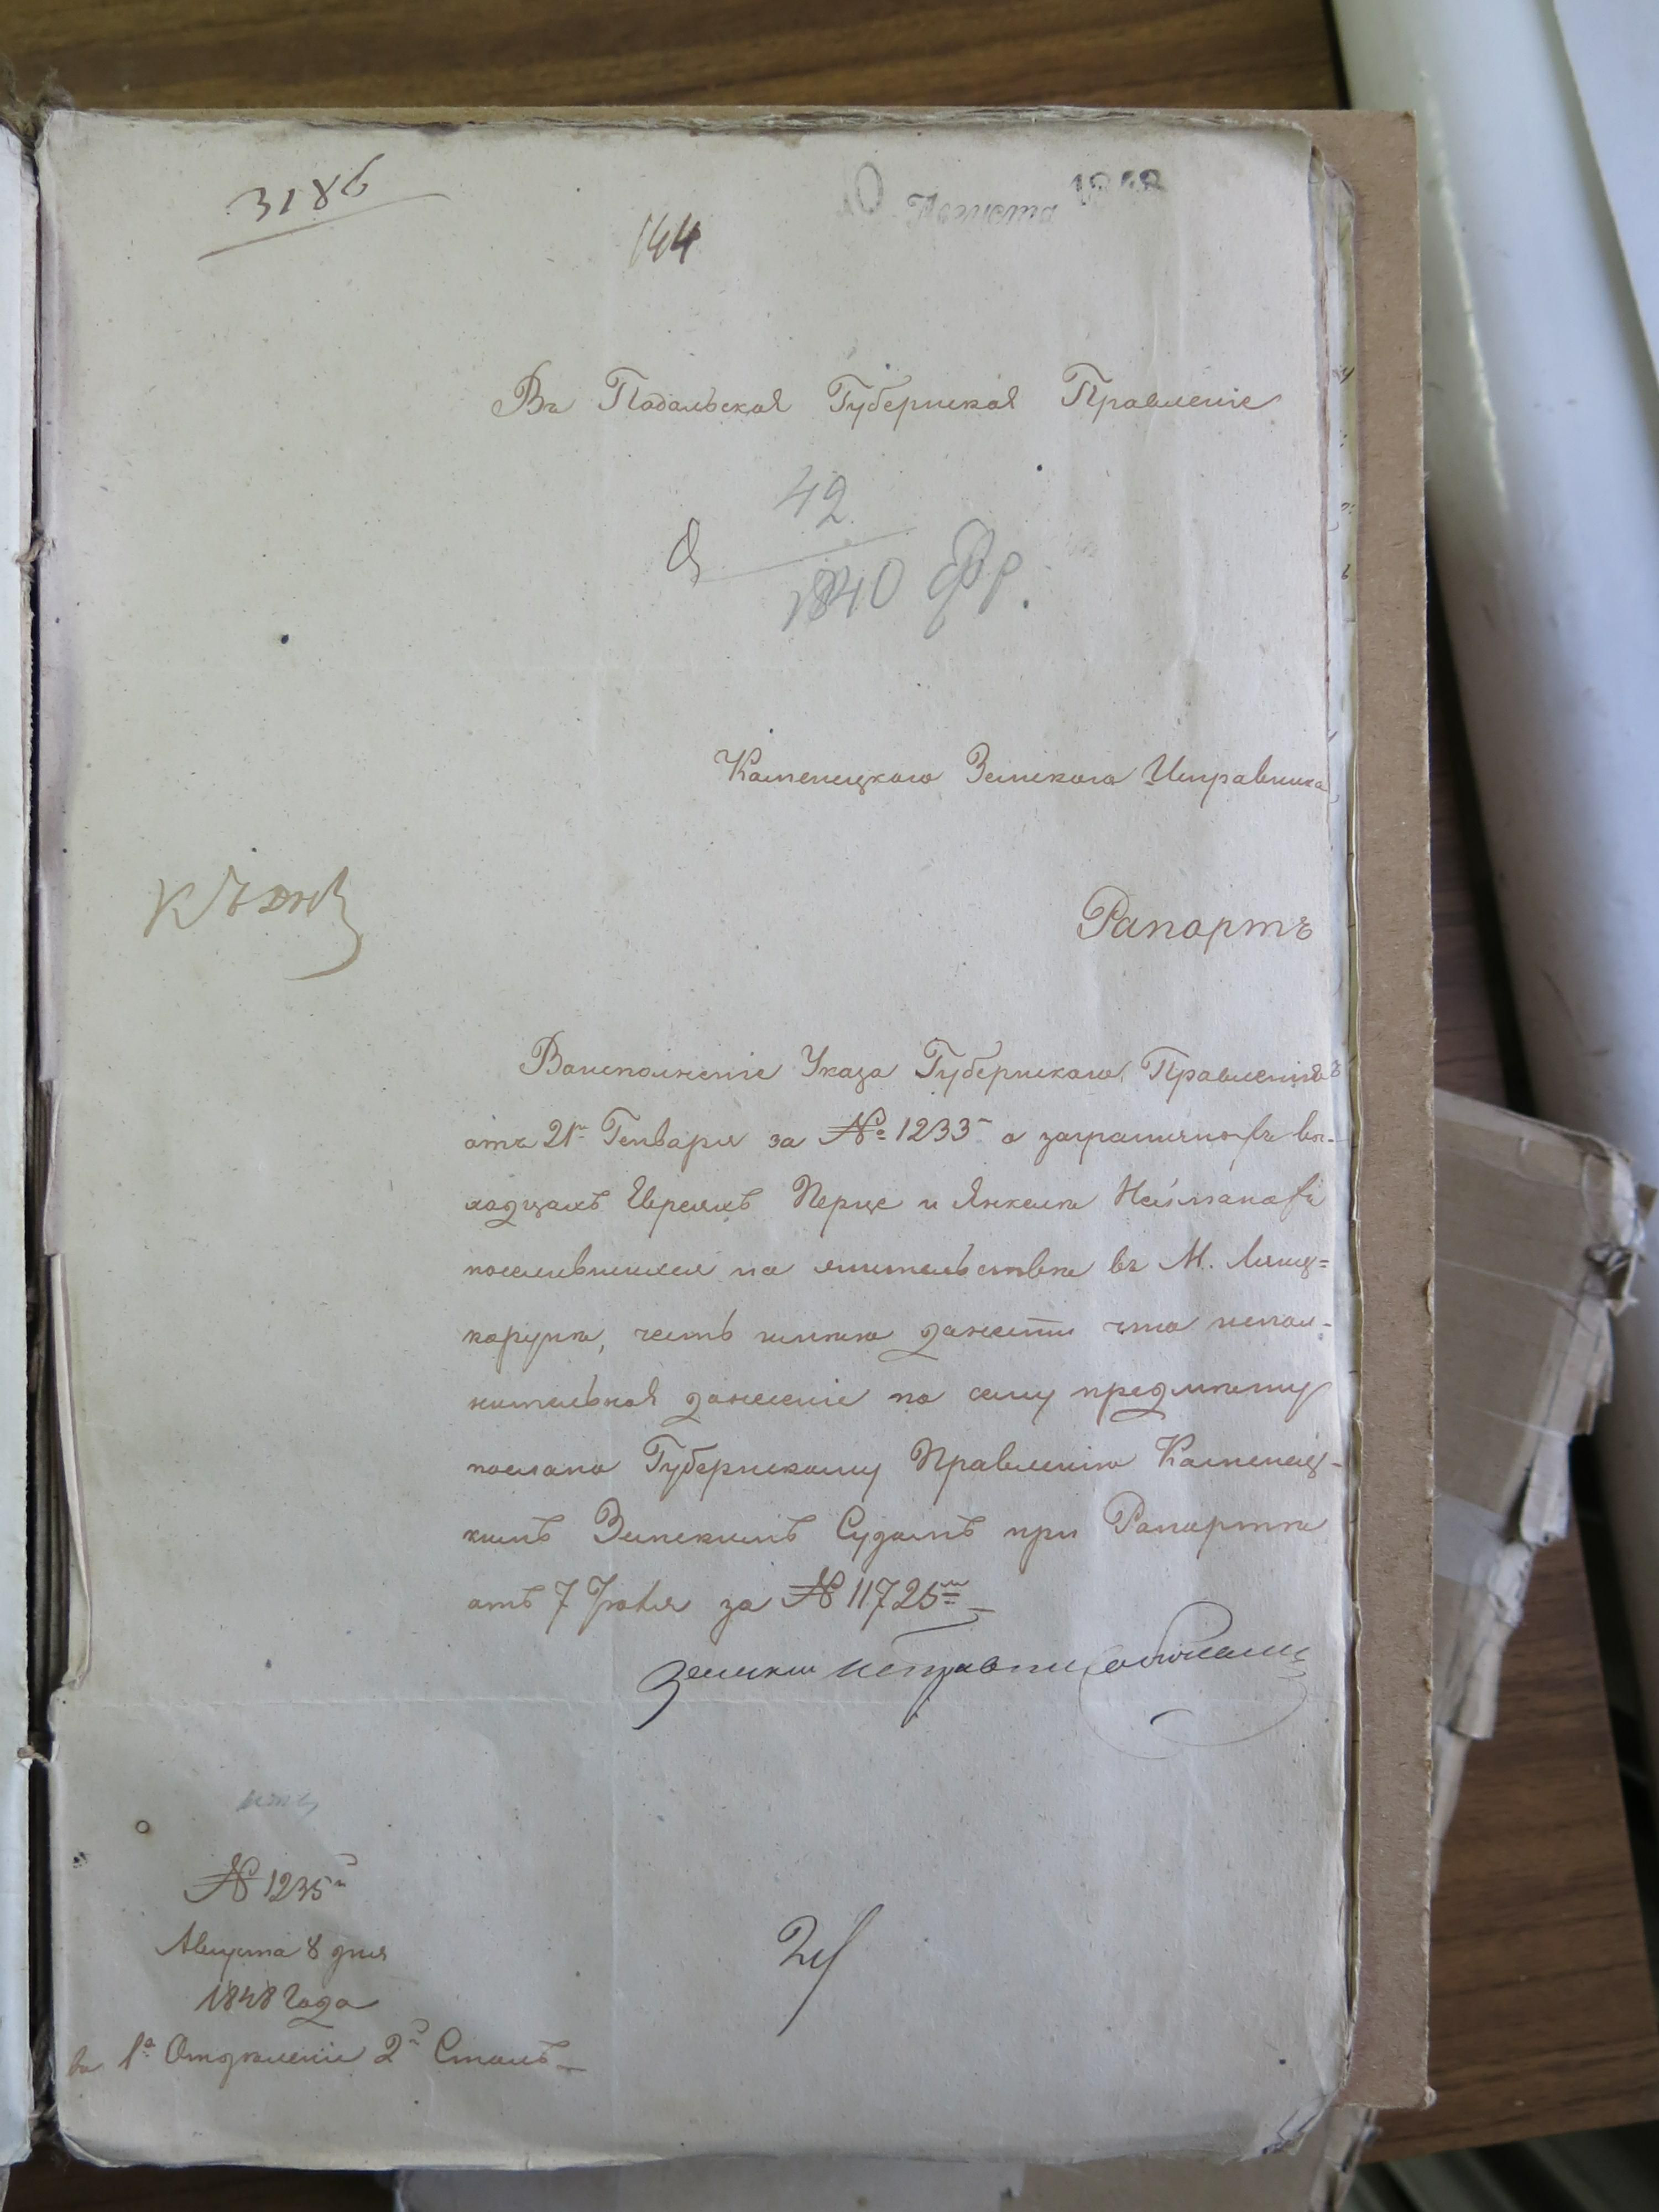 3186
10 Августа 1848
144
Въ Подольское Губернское Правленіе
42
1840
Каменецкого Земского Исправника
Къ дѣлу
Рапортъ
Воисполненіе Указа Губернского Правленія
отъ 21го Генваря за № 1233 о заграничныхъ вы-
ходцахъ Евреяхъ Перце и Янкеле Нейманахъ
поселившихся на жительство въ М. Лянц=
коруня, честь имею донести что испол-
нительное донесеніе по сему предмету
послано Губернскому Правленію Каменец-
кимъ Земскимъ Судомъ при Рапорте
отъ 7 Іюля за № 11725м
Земскій исправник
№ 1235
Августа 8 дня
1848 года
въ 1е Отделеніе 2й Столъ